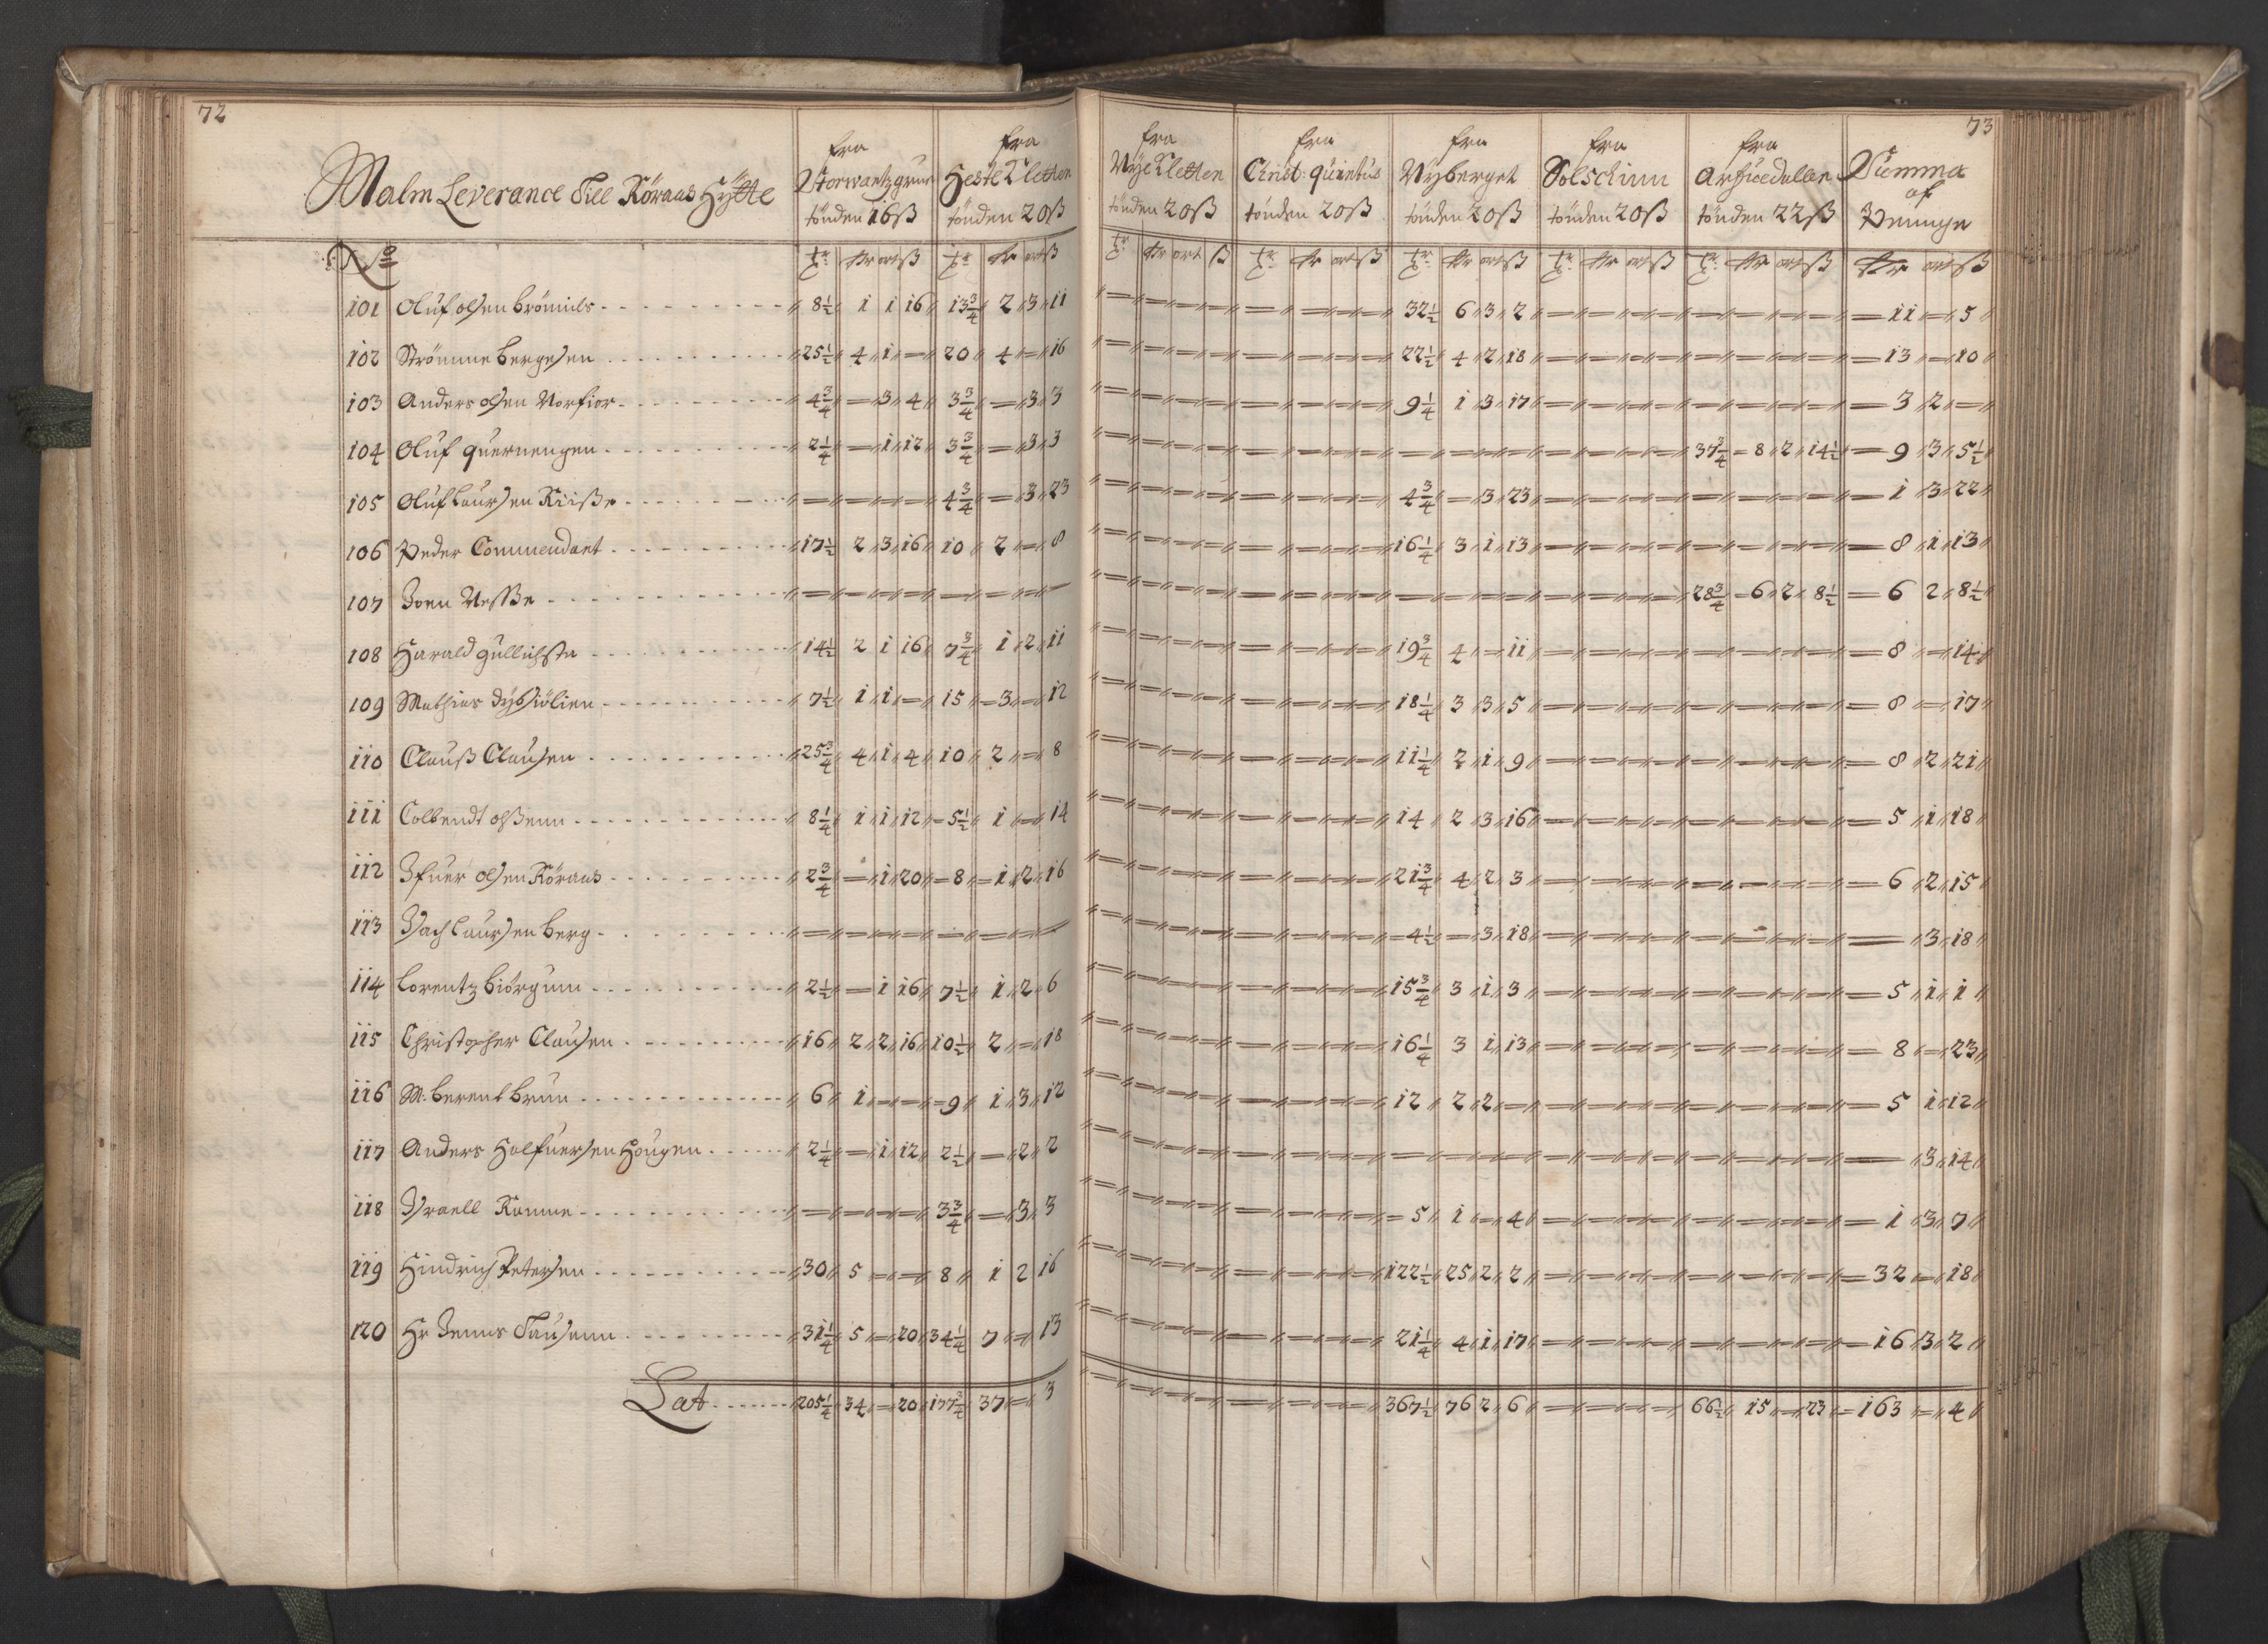 72
73
Malm Leverance Till Röraas Hÿtte
fra Storwartzgrufve tönden 16ß
fra HesteKletten tönden 20ß
fra MÿeKletten tönden 20ß
fra Christ: quintus tönden 20ß
fra Nÿberget tönden 20ß
fra Solschinn tönden 20ß
fra Arfuedallen tönden 22ß
Summa af Penninge
No
101 Oluf olsen Brömils 8½ 1 1 16 13¾ 2 3 11 32½ 6 3 2 11 5
102 Strömme bergesen 25½ 4 1 20 4 16 22½ 4 2 18 13 10
103 Anders olsen Norfior 4¾ 3 4 3¾ 3 3 9¼ 1 3 17 3 2
104 Oluf quernengen 2¼ 1 12 3¾ 3 3 37¾ 8 2 14½ 9 3 5½
105 Oluf Laursen Kiiße 4¾ 3 23 4¾ 3 23 1 3 22
106 Peder Commendant 17½ 2 3 16 10 2 8 16¼ 3 1 13 8 1 13
107 Joen Neßße 28¾ 6 2 8½ 6 2 8½
108 Harald gullichsta 14½ 2 1 16 7¾ 1 2 11 19¾ 4 11 8 14
109 Mathias dÿbsiölien 7½ 1 1 15 3 12 18¼ 3 3 5 8 17
110 Clauß Clausen 25¾ 4 1 4 10 2 8 11¼ 2 1 9 8 2 21
111 Colbendt olßenn 8¼ 1 1 12 5½ 1 14 14 2 3 16 5 1 18
112 Ifuer olsen Röraas 2¾ 1 20 8 1 2 16 21¾ 4 2 3 6 2 15
113 Isach Laursen berg 4½ 3 18 3 18
114 Lorentz biörgum 2½ 1 16 7½ 1 2 6 15¾ 3 1 3 5 1 1
115 Christopher Clausen 16 2 2 16 10½ 2 18 16¼ 3 1 13 8 23
116 M. berent brun 6 1 9 1 3 12 12 2 2 5 1 12
117 Anders Halfuersen Hougen 2¼ 1 12 2½ 2 2 3 14
118 Israell Ramme 3¾ 3 3 5 1 4 1 3 7
119 Hindrich Petersen 30 5 8 1 2 16 122½ 25 2 2 32 18
120 Hr Jenns Tausenn 31¼ 5 20 34¼ 7 13 21¼ 4 1 17 16 3 2
Lat 205¼ 34 20 177¾ 37 3 367½ 76 2 6 66½ 15 23 163 4